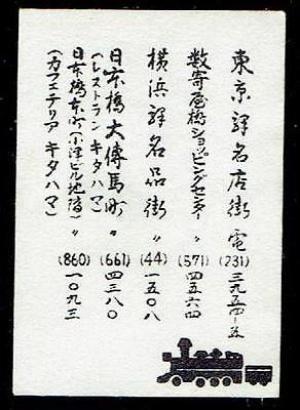 東京駅名店街 電(231)三九五四-五
数寄屋橋ショッピングセンター 〃(571)四五六四
横浜駅名品街 〃(44)一五〇八
日本橋大傳馬町 〃(661)四三八〇
(レストランキタハマ)
日本橋本町(小津ビル地階) 〃(860)一〇九三
(カフェテリアキタハマ)